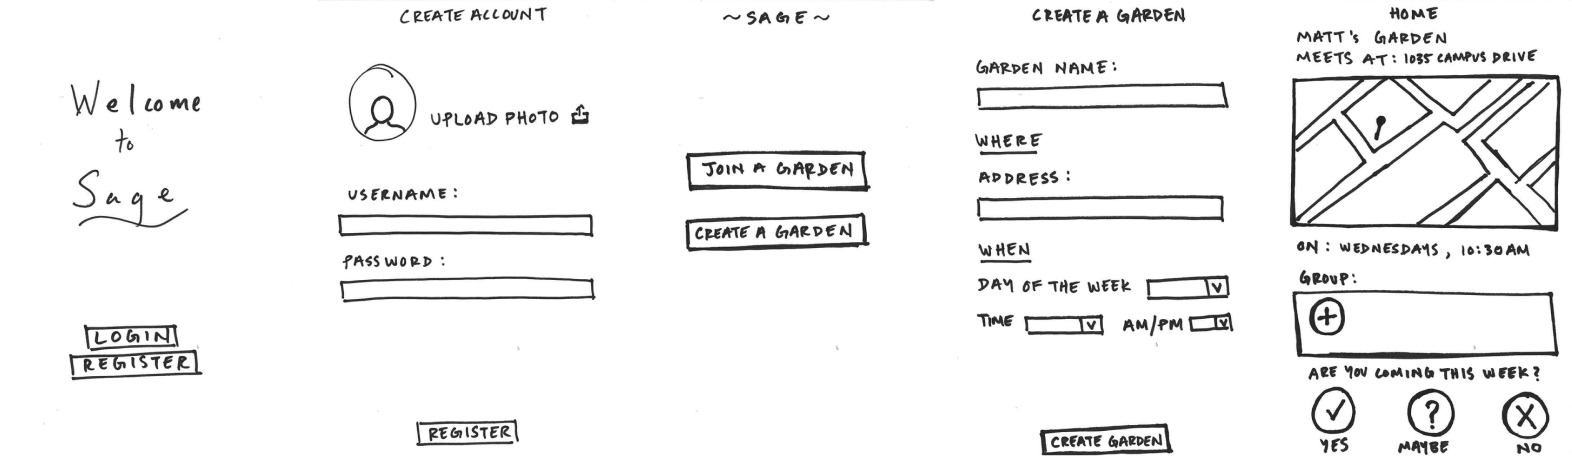 Welcome
to
Sage
LOGIN
REGISTER
CREATE ACCOUNT
UPLOAD PHOTO
USERNAME:
PASSWORD:
REGISTER
~SAGE~
JOIN A GARDEN
CREATE A GARDEN
CREATE A GARDEN
GARDEN NAME:
WHERE
ADDRESS:
WHEN
DAY OF THE WEEK V
TIME V AM/PM V
CREATE GARDEN
HOME
MATT's GARDEN
MEETS AT: 1035 CAMPUS DRIVE
ON: WEDNESDAYS, 10:30AM
GROUP:
+
ARE YOU COMING THIS WEEK?
✓ ? X
YES MAYBE NO